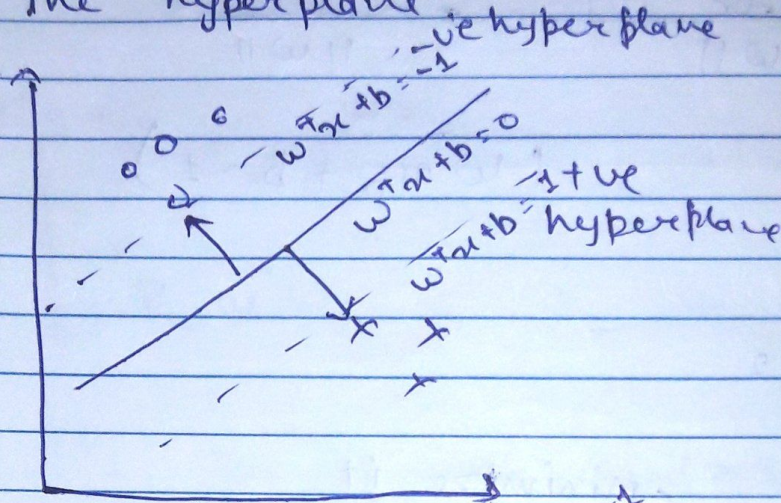 The hyperplane
-ve hyperplane
wᵀx+b=-1
wᵀx+b=0
wᵀx+b=1 +ve
hyperplane